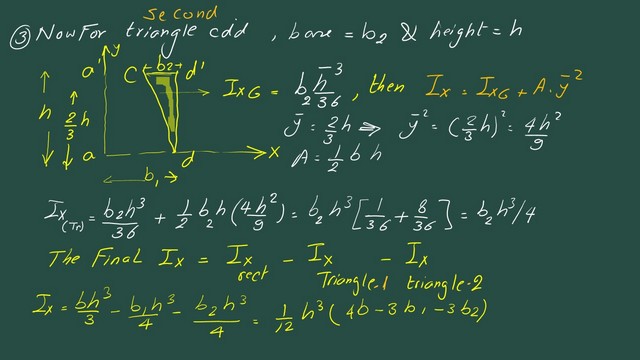 second
③ Now For triangle cdd', base = b₂ & height = h
y
a' C ←b₂→ d'
I_xG = b₂h³/36, then I_x = I_xG + A.ȳ²
h 2/3 h
ȳ = 2/3 h ⇒ ȳ² = (2/3 h)² = 4h²/9
a d x
A = 1/2 b h
b₁
I_x(Tr) = b₂h³/36 + 1/2 b₂ h (4h²/9) = b₂h³ [1/36 + 8/36] = b₂h³/4
The Final I_x = I_x rect - I_x Triangle.1 - I_x triangle-2
I_x = bh³/3 - b₁h³/4 - b₂h³/4 = 1/12 h³ (4b - 3b₁ - 3b₂)